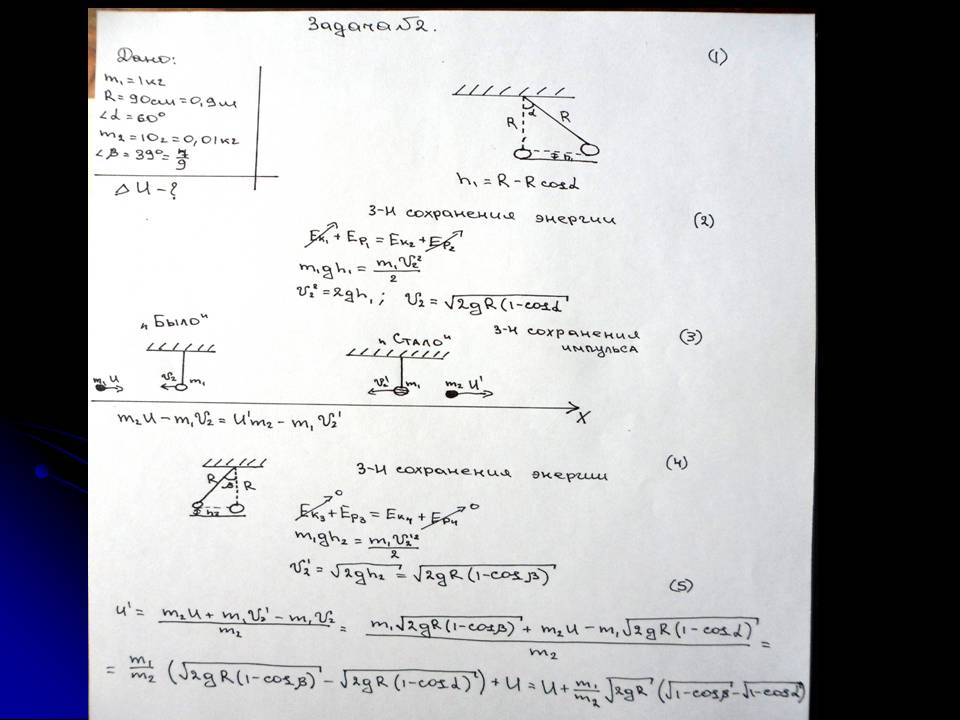 Задача №2.
(1)
Дано:
m₁ = 1 кг
R = 90 см = 0,9 м
∠α = 60°
m₂ = 10г = 0,01 кг
∠β = 39° = 7/9
ΔU - ?
α
R
R
h₁
h₁ = R - R cosα
З-н сохранения энергии
(2)
Eк₁ + Eр₁ = Eк₂ + Eр₂
m₁gh₁ = m₁υ₂²/2
υ₂² = 2gh₁ ; υ₂ = √2gR(1-cosα
„Было“
„Стало“
З-н сохранения импульса
(3)
m₁ U
υ₂
m₁
υ₂'
m₁
m₂ U'
X
m₂U - m₁υ₂ = U'm₂ - m₁υ₂'
(4)
З-н сохранения энергии
R
β
R
h₂
Eк₃ ⁰ + Eр₃ = Eк₄ + Eр₄ ⁰
m₁gh₂ = m₁υ₂'²/2
υ₂' = √2gh₂ = √2gR(1-cosβ)
(5)
U' = (m₂U + m₁υ₂' - m₁υ₂)/m₂ = (m₁√2gR(1-cosβ) + m₂U - m₁√2gR(1-cosα))/m₂ =
= m₁/m₂ (√2gR(1-cosβ) - √2gR(1-cosα)) + U = U + m₁/m₂ √2gR (√1-cosβ - √1-cosα)